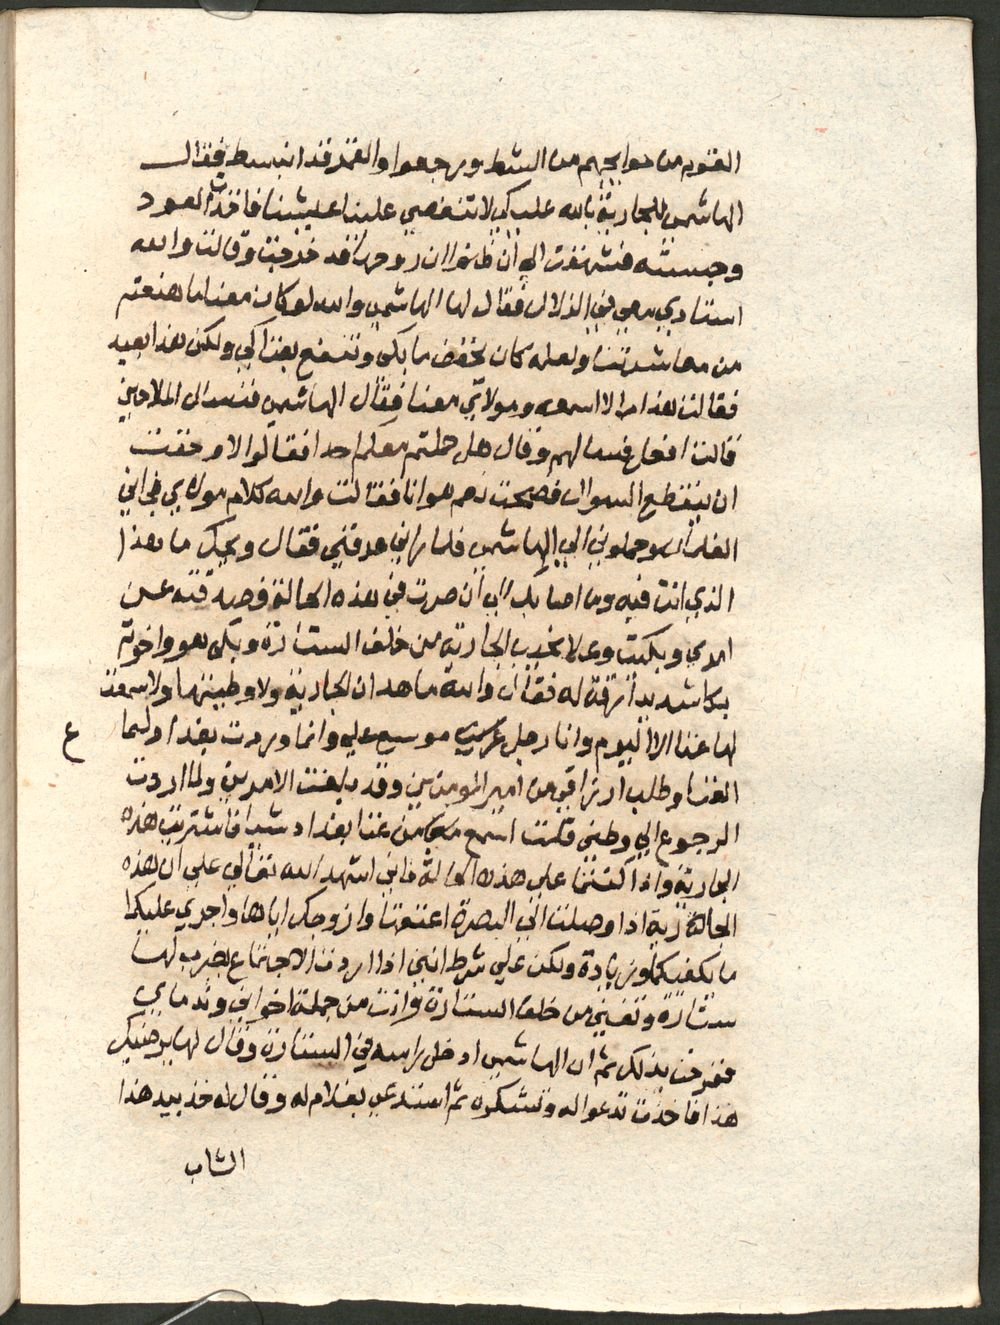 القوم من حوايجهم من الشط ورجعوا والقمر قد انبسط فقال
الهاشمي للجارية بالله عليكي لا تنغصي علينا عيشنا فاخذت العود
وجسته فشهقت الي ان ظنوا ان روحها قد خرجت وقالت والله
استادي معي في الزلال فقال لها الهاشمي والله لو كان معنا ما منعته
من معاشرتنا ولعله كان يخفف ما بكي وننتفع بغناكي ولكن هذا بعيد
فقالت هذا ما لا اسمعه ومولاي معنا فقال الهاشمي فنسال الملاحين
قالت افعل فسالهم وقال هل حملتم معكم احدا فقالوا لا وخفت
ان ينقطع السوال فصحت نعم هو انا فقالت والله كلام مولاي فجاني
الغلمان وحملوني الي الهاشمي فلما راني عرفني فقال ويحك ما هذا
الذي انت فيه وما اصابك الي ان صرت في هذه الحالة فصدقته عن
امري وبكيت وعلا نحيب الجارية من خلف الستارة وبكي هو واخوته
بكا شديدا رقة له فقال والله ما هذ ان الجارية ولا وطيتها ولا سمعت
لها غنا الا اليوم وانا رجل عربي موسع علي وانما وردت بغداد لسما
الغنا وطلب ارزاقي من امير المومنين وقد بلغت الامرين ولما اردت
الرجوع الي وطني قلت اسمع من غنا بغداد شيا فاشتريت هذه
الجارية واذا كنتما علي هذه الحالة فاني اشهد الله تعالي علي ان هذه
الجارية اذا وصلت الي البصرة اعتقتها وازوجك اياها واجري عليكما
ما يكفيكما وزيادة ولكن علي شرط انني اذا اردت الاجتماع يضرب لها
ستارة وتغني من خلف الستارة وانت من جملة اخواني وندماي
ففرحت بذلك ثم ان الهاشمي ادخل راسه في الستارة وقال لها يرضيك
هذا فاخذت تدعوا له وتشكره ثم استدعي بغلام له وقال له خذ بيد هذا
الشاب
ع